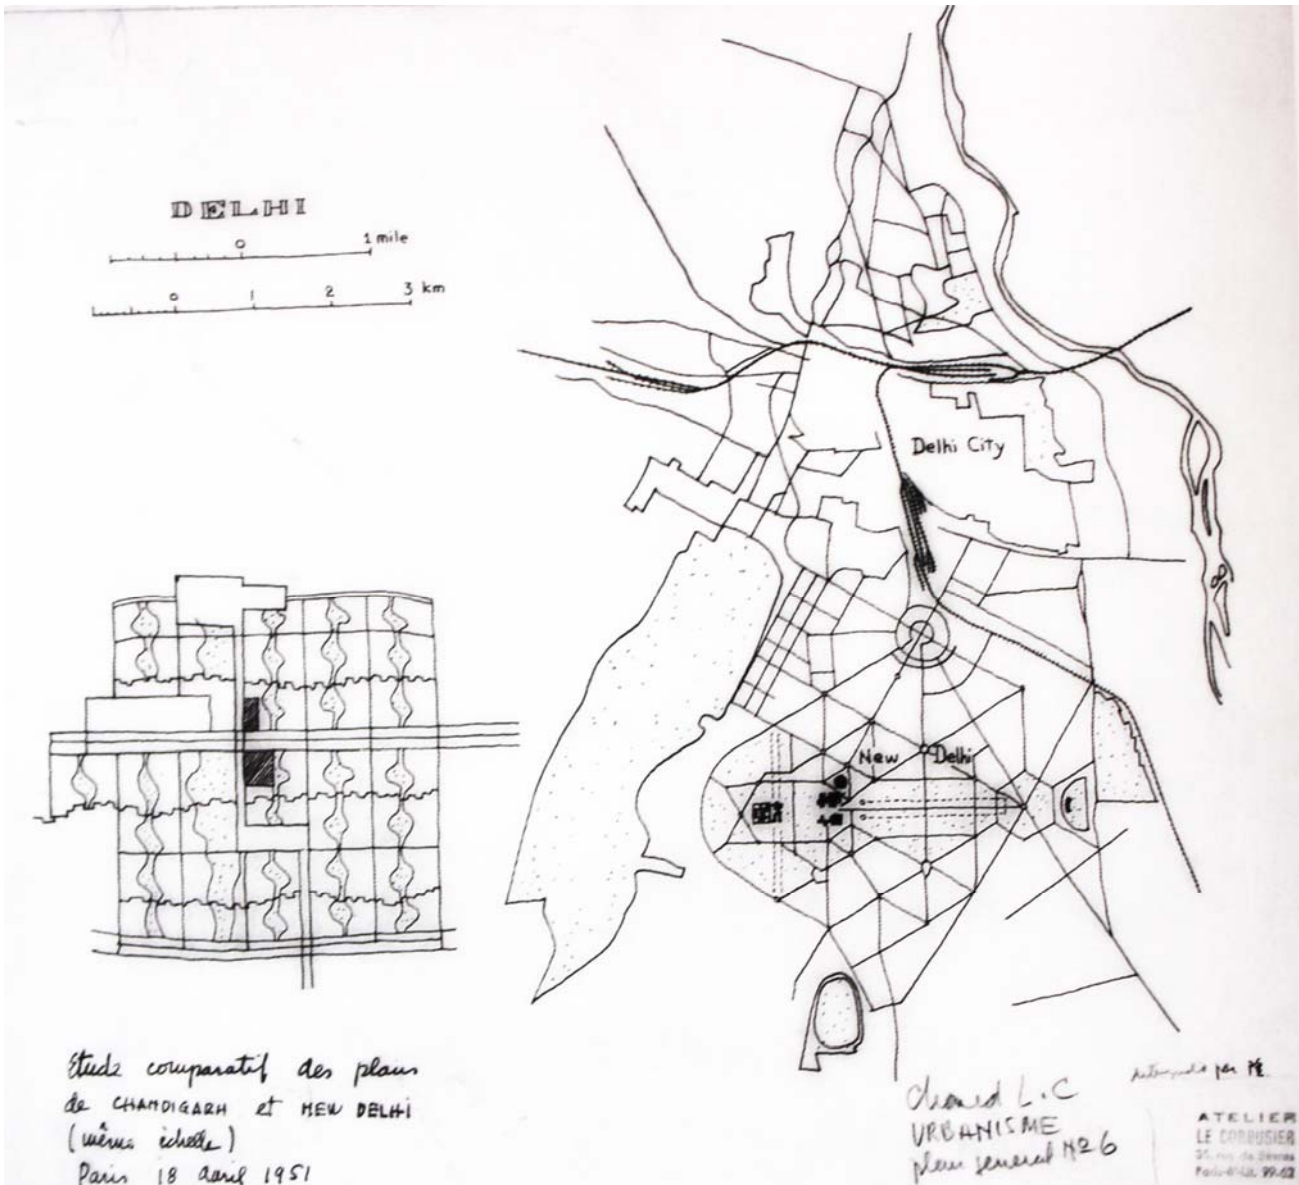 DELHI
0 1 mile
0 1 2 3 km
Delhi City
New Delhi
Etude comparatif des plans
de CHANDIGARH et NEW DELHI
(même échelle)
Paris 18 avril 1951
L.C
URBANISME
plan general Nº 6
par
ATELIER
LE CORBUSIER
35, rue de Sèvres
Paris